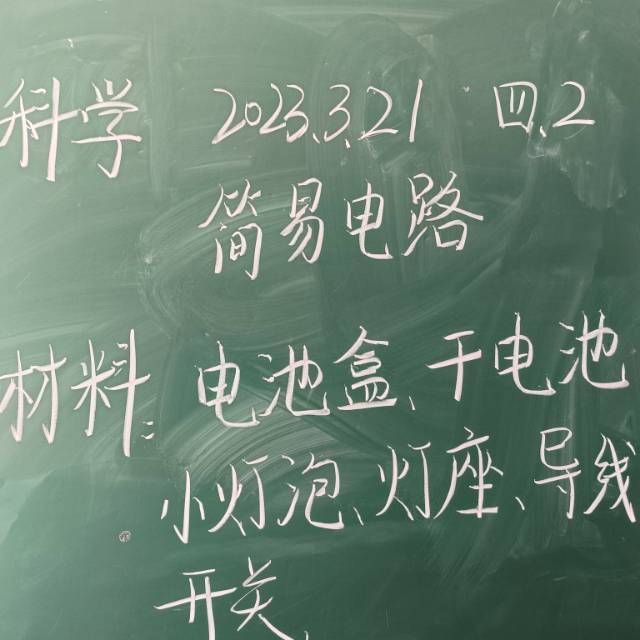 科学 2023.3.21 四.2
简易电路
材料:电池盒、干电池
小灯泡、灯座、导线
开关、